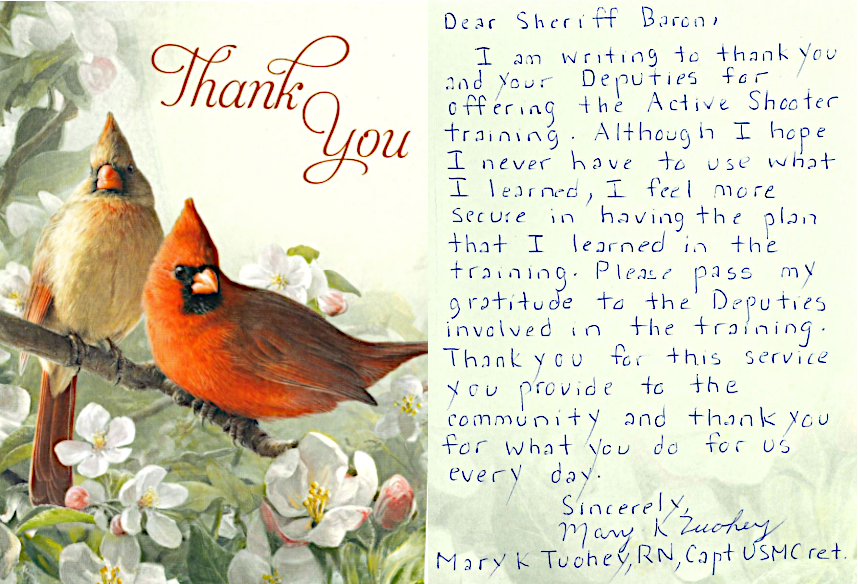 Thank
You
Dear Sheriff Baron,
I am writing to thank you
and your Deputies for
offering the Active Shooter
training. Although I hope
I never have to use what
I learned, I feel more
secure in having the plan
that I learned in the
training. Please pass my
gratitude to the Deputies
involved in the training.
Thank you for this service
you provide to the
community and thank you
for what you do for us
every day.
Sincerely,
Mary K Tuohey
Mary K Tuohey, RN, Capt USMC ret.